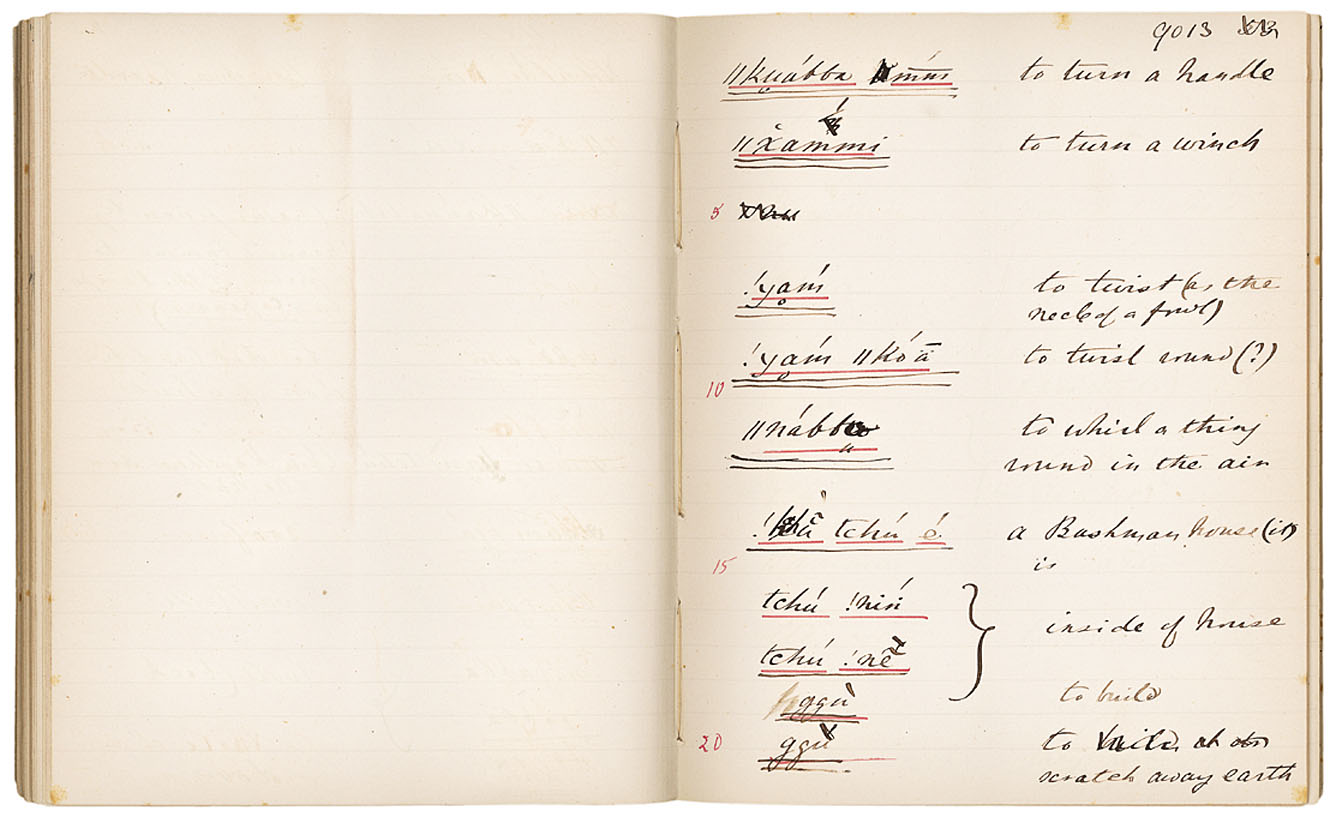 9013
ǁku̥ábba m̄ḿm to turn a handle
ǁx̌ammi to turn a winch
5
!yḁḿ to twist (as the
neck of a fowl)
!yḁḿ ǁkó ā to twist round (?)
10
ǁnábba to whirl a thing
round in the air
tchú é a Bushman house (it)
15 is
tchú !niń
inside of house
tchú !nĕ
ggù to build
20 ggù to
scratch away earth